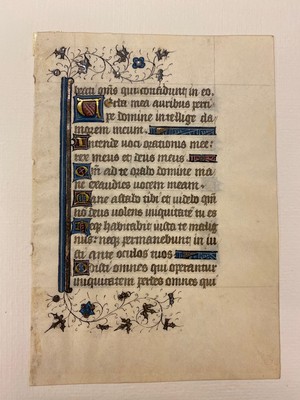 beati om̅s qui confidunt in eo.
Verba mea auribus perci
pe domine intellige cla
morem meum.
Intende voci orationis mee:
rex meus et deus meus
Qm̅ ad te orabo domine ma
ne exaudies vocem meam.
Mane astabo tibi et videbo qm̅
no̅ deus volens iniquitate̅ tu es
Neqꝫ habitabit iuxta te malig
nus: neqꝫ permanebunt in iu
sti ante oculos tuos
Odisti omnes qui operantur
iniquitatem perdes omnes qui